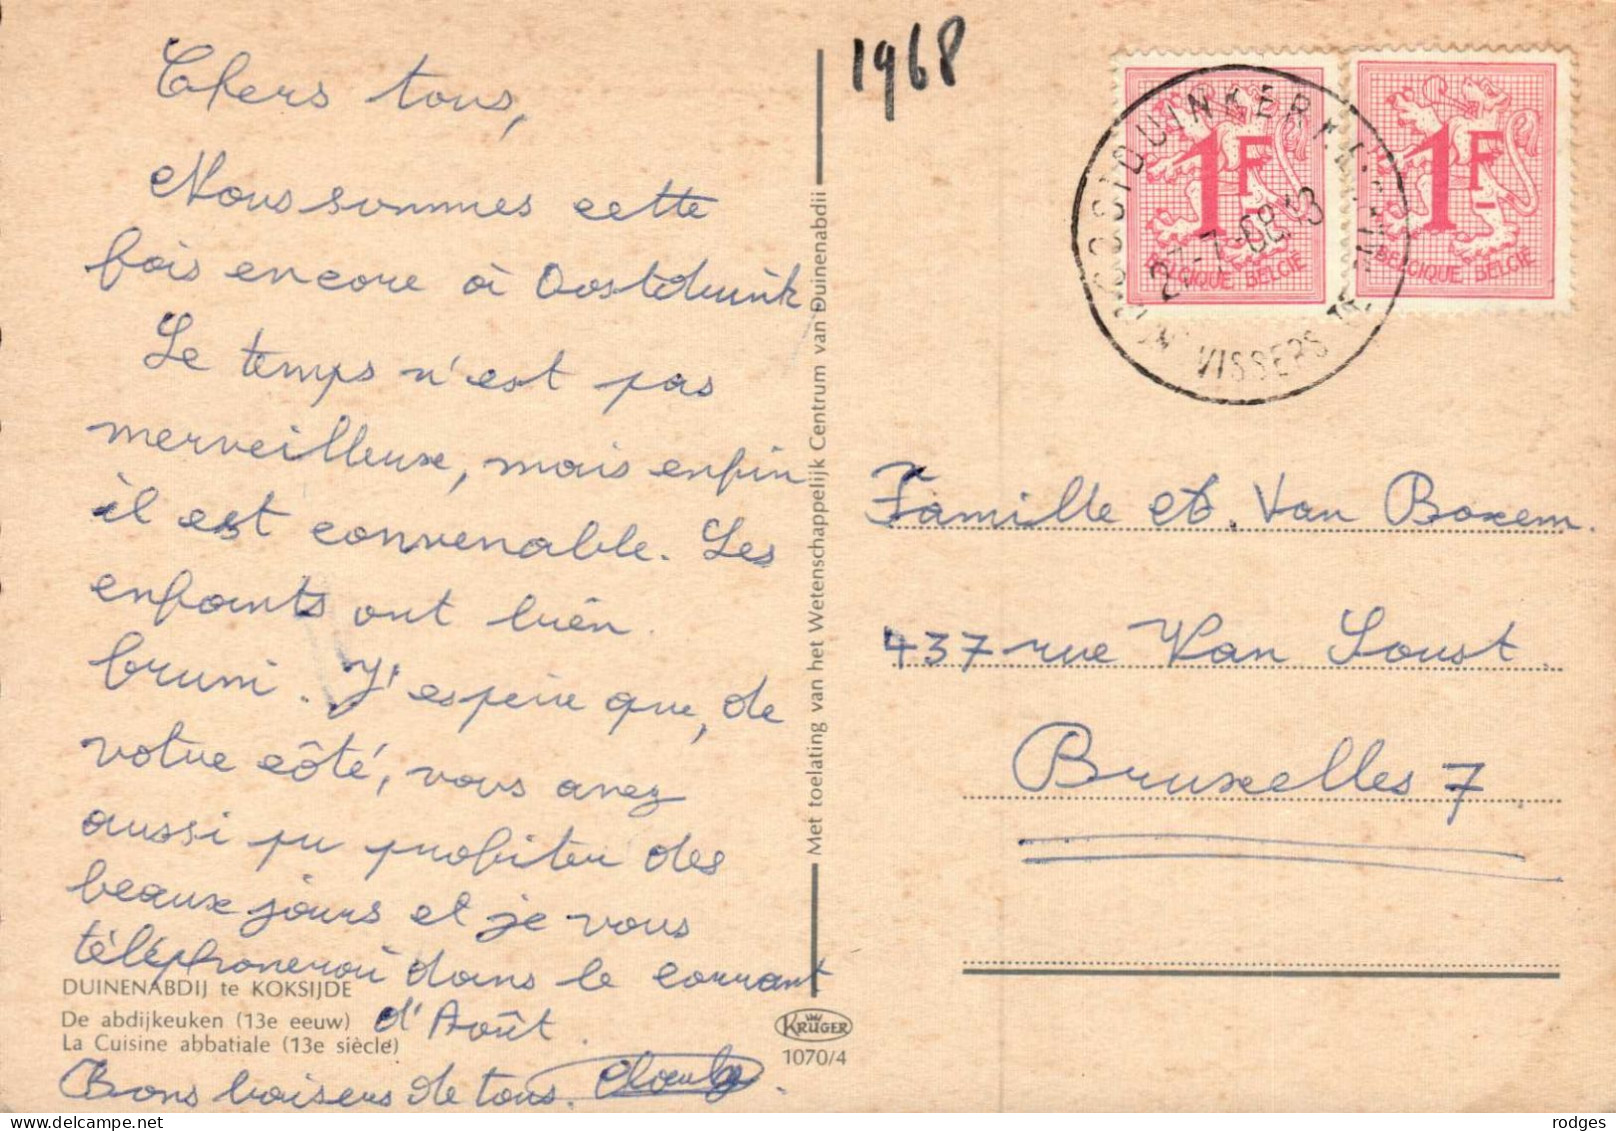 Chers tous,
Nous sommes cette
fois encore à Oostduink
Le temps n'est pas
merveilleux, mais enfin
il est convenable. Les
enfants ont bien
bruni. J'espère que, de
votre côté, vous avez
aussi pu profiter des
beaux jours et je vous
téléphonerai dans le courrant
d'Août.
Bons baisers de tous.
DUINENABDIJ te KOKSIJDE
De abdijkeuken (13e eeuw)
La Cuisine abbatiale (13e siècle)
Met toelating van het Wetenschappelijk Centrum van Duinenabdij
KRÜGER
1070/4
1968
1F
BELGIQUE BELGIË
1F
BELGIQUE BELGIË
OOSTDUINKERKE
VISSERS
Famille et. Van Boxem.
437 rue Van Soust.
Bruxelles 7
rodges
www.delcampe.net